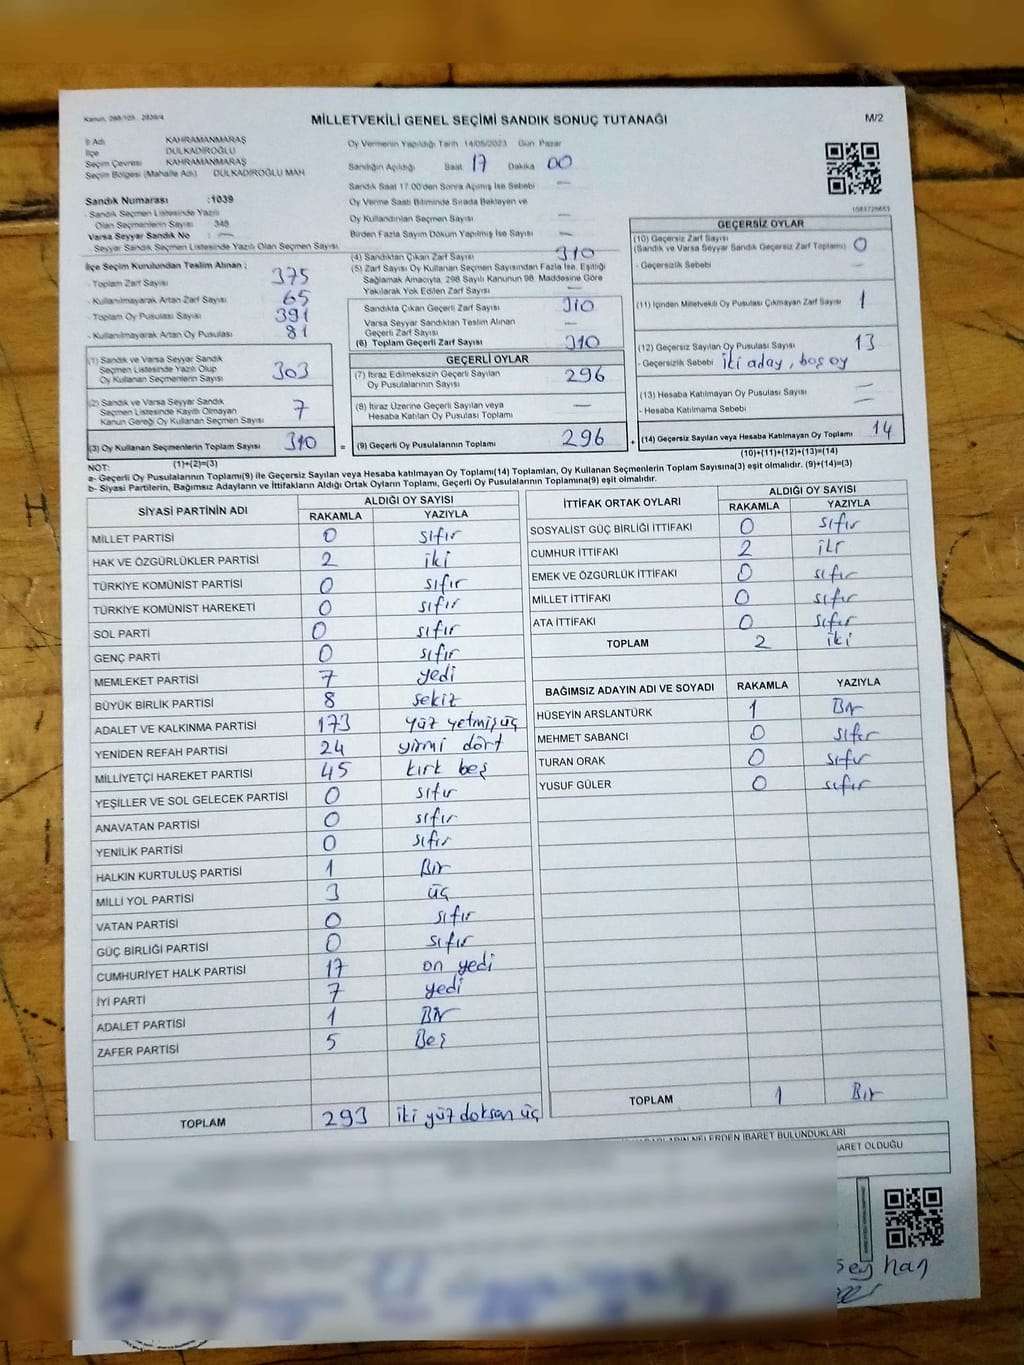 MİLLETVEKİLİ GENEL SEÇİMİ SANDIK SONUÇ TUTANAĞI
M/2
İl Adı KAHRAMANMARAŞ
İlçe DULKADİROĞLU
Seçim Çevresi KAHRAMANMARAŞ
Seçim Bölgesi (Mahalle Adı) DULKADİROĞLU MAH
Sandık Numarası :1039
- Sandık Seçmen Listesinde Yazılı
Olan Seçmenlerin Sayısı 348
Varsa Seyyar Sandık No : —
Seyyar Sandık Seçmen Listesinde Yazılı Olan Seçmen Sayısı
Oy Vermenin Yapıldığı Tarih 14/05/2023 Gün Pazar
Sandığın Açıldığı Saat 17 Dakika 00
Sandık Saat 17.00'den Sonra Açılmış İse Sebebi —
Oy Verme Saati Bitiminde Sırada Bekleyen ve
Oy Kullandırılan Seçmen Sayısı —
Birden Fazla Sayım Döküm Yapılmış İse Sayısı —
İlçe Seçim Kurulundan Teslim Alınan ;
- Toplam Zarf Sayısı 375
- Kullanılmayarak Artan Zarf Sayısı 65
- Toplam Oy Pusulası Sayısı 391
- Kullanılmayarak Artan Oy Pusulası 81
(1) Sandık ve Varsa Seyyar Sandık
Seçmen Listesinde Yazılı Olup
Oy Kullanan Seçmenlerin Sayısı 303
(2) Sandık ve Varsa Seyyar Sandık
Seçmen Listesinde Kayıtlı Olmayan
Kanun Gereği Oy Kullanan Seçmen Sayısı 7
(3) Oy Kullanan Seçmenlerin Toplam Sayısı 310 =
(1)+(2)=(3)
(4) Sandıktan Çıkan Zarf Sayısı 310
(5) Zarf Sayısı Oy Kullanan Seçmen Sayısından Fazla İse, Eşitliği
Sağlamak Amacıyla, 298 Sayılı Kanunun 98. Maddesine Göre
Yakılarak Yok Edilen Zarf Sayısı —
Sandıkta Çıkan Geçerli Zarf Sayısı 310
Varsa Seyyar Sandıktan Teslim Alınan
Geçerli Zarf Sayısı —
(6) Toplam Geçerli Zarf Sayısı 310
GEÇERLİ OYLAR
(7) İtiraz Edilmeksizin Geçerli Sayılan
Oy Pusulalarının Sayısı 296
(8) İtiraz Üzerine Geçerli Sayılan veya
Hesaba Katılan Oy Pusulası Toplamı —
(9) Geçerli Oy Pusulalarının Toplamı 296 +
GEÇERSİZ OYLAR
(10) Geçersiz Zarf Sayısı
(Sandık ve Varsa Seyyar Sandık Geçersiz Zarf Toplamı) 0
- Geçersizlik Sebebi —
(11) İçinden Milletvekili Oy Pusulası Çıkmayan Zarf Sayısı 1
(12) Geçersiz Sayılan Oy Pusulası Sayısı 13
- Geçersizlik Sebebi iki aday, boş oy
(13) Hesaba Katılmayan Oy Pusulası Sayısı —
- Hesaba Katılmama Sebebi —
(14) Geçersiz Sayılan veya Hesaba Katılmayan Oy Toplamı 14
(10)+(11)+(12)+(13)=(14)
NOT:
a- Geçerli Oy Pusulalarının Toplamı(9) ile Geçersiz Sayılan veya Hesaba katılmayan Oy Toplamı(14) Toplamları, Oy Kullanan Seçmenlerin Toplam Sayısına(3) eşit olmalıdır. (9)+(14)=(3)
b- Siyasi Partilerin, Bağımsız Adayların ve İttifakların Aldığı Ortak Oyların Toplamı, Geçerli Oy Pusulalarının Toplamına(9) eşit olmalıdır.
SİYASİ PARTİNİN ADI ALDIĞI OY SAYISI
RAKAMLA YAZIYLA
MİLLET PARTİSİ 0 sıfır
HAK VE ÖZGÜRLÜKLER PARTİSİ 2 iki
TÜRKİYE KOMÜNİST PARTİSİ 0 sıfır
TÜRKİYE KOMÜNİST HAREKETİ 0 sıfır
SOL PARTİ 0 sıfır
GENÇ PARTİ 0 sıfır
MEMLEKET PARTİSİ 7 yedi
BÜYÜK BİRLİK PARTİSİ 8 sekiz
ADALET VE KALKINMA PARTİSİ 173 yüz yetmişüç
YENİDEN REFAH PARTİSİ 24 yirmi dört
MİLLİYETÇİ HAREKET PARTİSİ 45 kırk beş
YEŞİLLER VE SOL GELECEK PARTİSİ 0 sıfır
ANAVATAN PARTİSİ 0 sıfır
YENİLİK PARTİSİ 0 sıfır
HALKIN KURTULUŞ PARTİSİ 1 Bir
MİLLİ YOL PARTİSİ 3 üç
VATAN PARTİSİ 0 sıfır
GÜÇ BİRLİĞİ PARTİSİ 0 sıfır
CUMHURİYET HALK PARTİSİ 17 on yedi
İYİ PARTİ 7 yedi
ADALET PARTİSİ 1 Bir
ZAFER PARTİSİ 5 Beş
TOPLAM 293 iki yüz doksan üç
İTTİFAK ORTAK OYLARI ALDIĞI OY SAYISI
RAKAMLA YAZIYLA
SOSYALİST GÜÇ BİRLİĞİ İTTİFAKI 0 sıfır
CUMHUR İTTİFAKI 2 iki
EMEK VE ÖZGÜRLÜK İTTİFAKI 0 sıfır
MİLLET İTTİFAKI 0 sıfır
ATA İTTİFAKI 0 sıfır
TOPLAM 2 iki
BAĞIMSIZ ADAYIN ADI VE SOYADI RAKAMLA YAZIYLA
HÜSEYİN ARSLANTÜRK 1 Bir
MEHMET SABANCI 0 sıfır
TURAN ORAK 0 sıfır
YUSUF GÜLER 0 sıfır
TOPLAM 1 Bir
NELERDEN İBARET BULUNDUKLARI
İBARET OLDUĞU
Seyhan